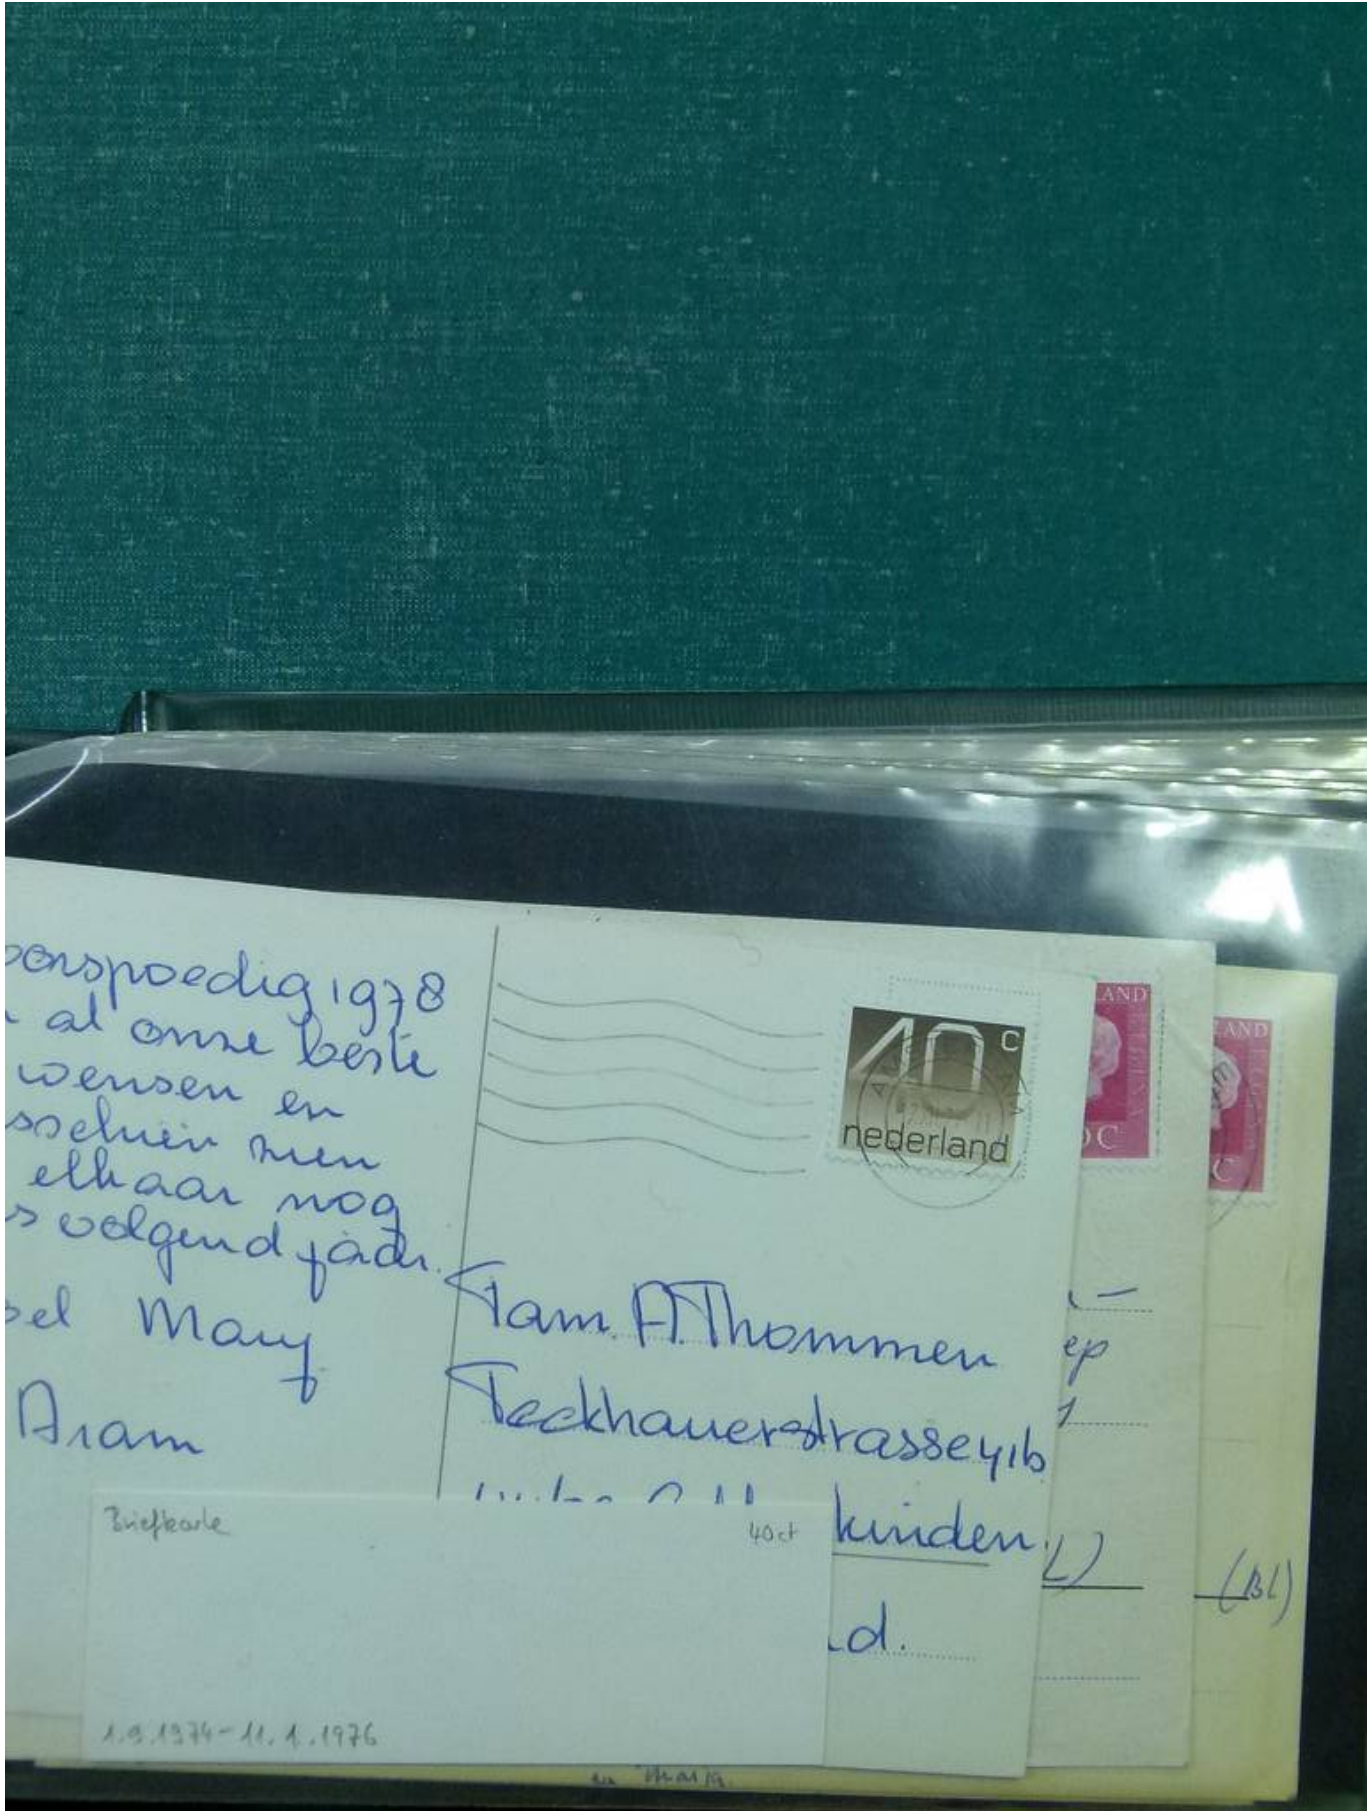 oorspoedig 1978
al onze beste
wensen en
sschien zien
elkaar nog
s volgend jaar.
Mary
Aram
40 c
nederland
LAND
C
LAND
C
Fam. A. Thommen
Teckhauerstrasse 41b
kinden
d.
ep
L)
(BL)
Briefkarte
40 ct
1.9.1974 - 11.1.1976
en Maria